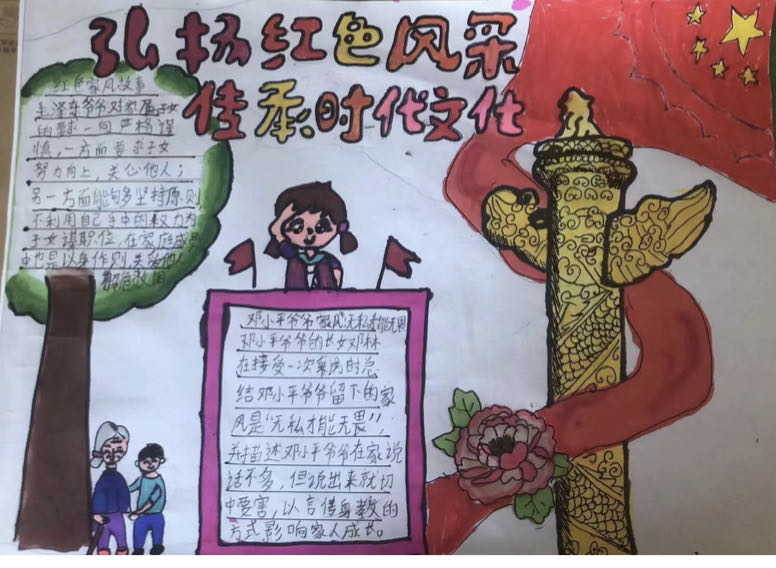 弘扬红色风采
传承时代文化
红色家风故事
毛泽东爷爷对家属子女
的要求一向严格谨
慎，一方面要求子女
努力向上，关心他人；
另一方面能够多坚持原则
不利用自己手中的权力为
子女谋职位，在家庭成员
中也是以身作则，关爱他人
解危救困
邓小平爷爷家风“无私才能无畏
邓小平爷爷的长女邓林
在接受一次采访时总
结邓小平爷爷留下的家
风是“无私才能无畏”，
并描述邓小平爷爷在家说
话不多，但说出来就切
中要害，以言传身教的
方式影响家人成长。